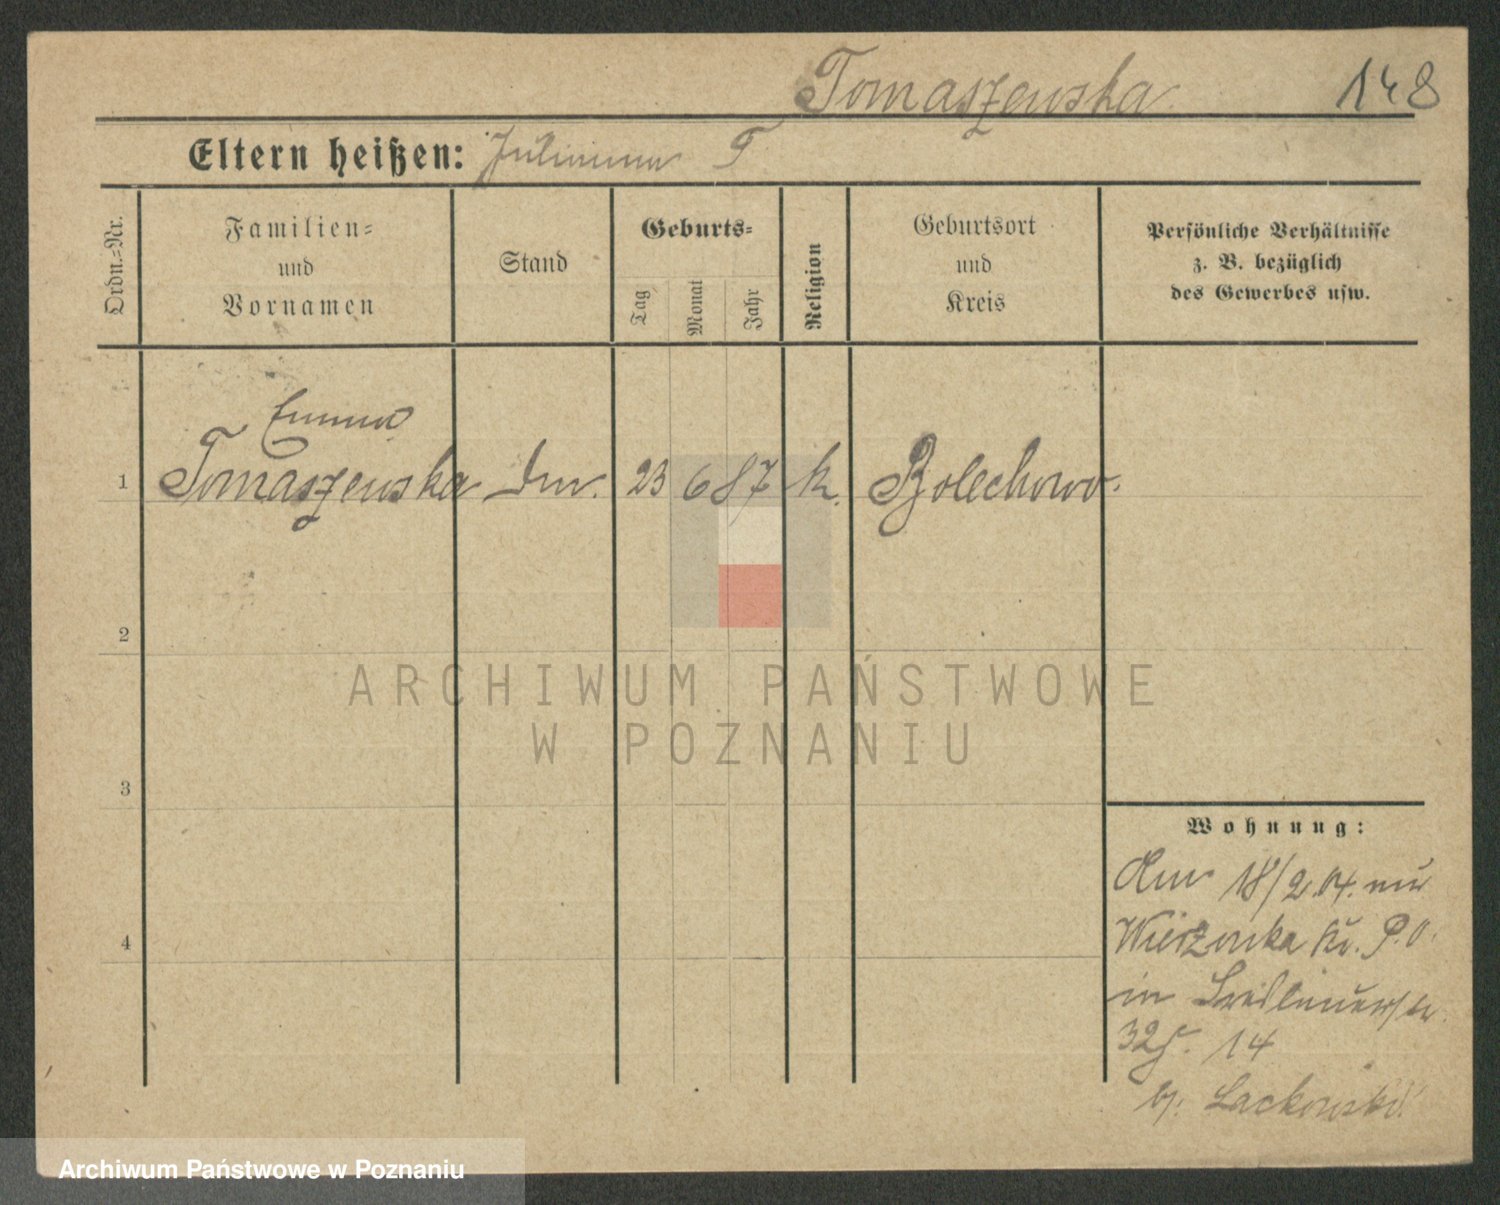 Tomaszewska 148
Eltern heißen: T
Ordn.=Nr.
Familien=
und
Vornamen
Stand
Geburts=
Tag
Monat
Jahr
Religion
Geburtsort
und
Kreis
Persönliche Verhältnisse
z. B. bezüglich
des Gewerbes usw.
Emma
1 Tomaszewska 23 6 87 k. Bolechowo.
2
3
4
Wohnung:
18/2.04.
Wierzonka Kr. P. O.
in
14
b. Lackowski
ARCHIWUM PAŃSTWOWE
W POZNANIU
Archiwum Państwowe w Poznaniu